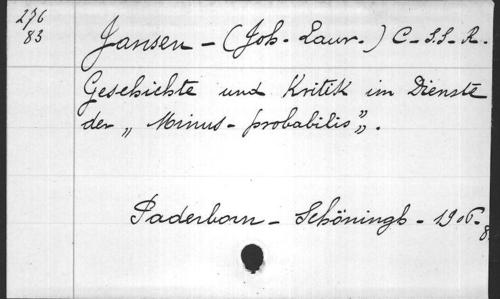 276
83
Jansen - (Joh. Laur.) C-SS-R.
Geschichte und Kritik im Dienste
der „ Minus-probabilis ”.
Paderborn - Schöningh - 1906-8